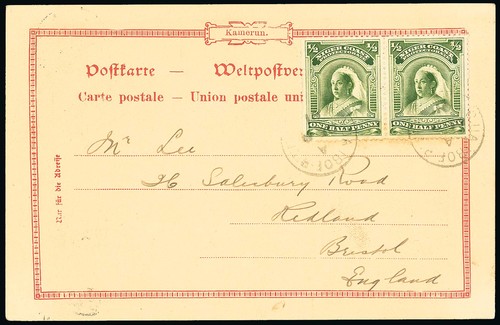 Kamerun.
½ ½ ½ ½
NIGER COAST NIGER COAST
PROTECTORATE PROTECTORATE
ONE HALF PENNY ONE HALF PENNY
Postkarte — Weltpostver
Carte postale — Union postale uni
Nur für die Adresse
Mr Lee
Salesbury Road
Redland
Bristol
England